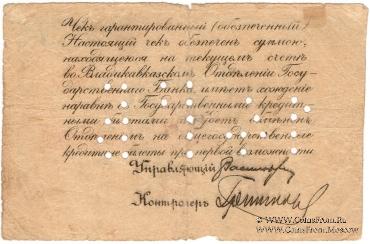 Чекъ гарантированный (обезпеченный)
Настоящій чекъ обезпеченъ суммою,
находящеюся на текущемъ счету
во Владикавказскомъ Отдѣленіи Госу-
дарственнаго Банка, имѣетъ хожденіе
наравнѣ съ Государственными кредит-
ными билетами и будетъ обмѣненъ
Отдѣленіемъ на общегосударственные
кредитные билеты при первой возможности.
Управляющій
Контролеръ
© www.CoinsFrom.Ru
CoinsFrom.Moscow